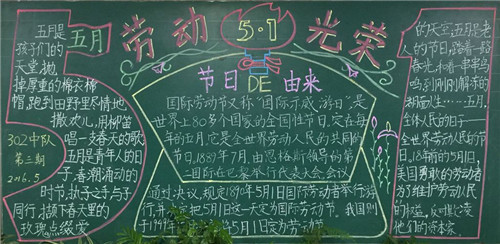 劳动 5·1 光荣
五月
五月是
孩子们的
天堂,抛
掉厚重的棉衣棉
帽,跑到田野里尽情地
撒欢儿,用柳笛
唱一支春天的歌,
五月是青年人的日
子,春潮涌动的
时节,执子之手与子
同行,撷下春天里的
玫瑰点缀爱
302中队
第三期
2016.5
节日DE由来
国际劳动节又称“国际示威游日”是
世界上80多个国家的全国性节日,定在每
年的五月,它是全世界劳动人民的共同的
节日,1889年7月,由恩格斯领导的第
二国际在巴黎举行代表大会,会议
通过决议,规定1890年5月1日国际劳动者举行游
行,并决定把5月1日这一天定为国际劳动节。我国则
于1949年 5月1日定为劳动节
的天堂,五月是老
人的节日,踏着一路
春光,
五月,
全体人民的日子
全世界劳动人民的
节日,18 年前的5月1日,
美国勇敢的劳动者
为了维护劳动人民
的权益,反
他们的资本家。